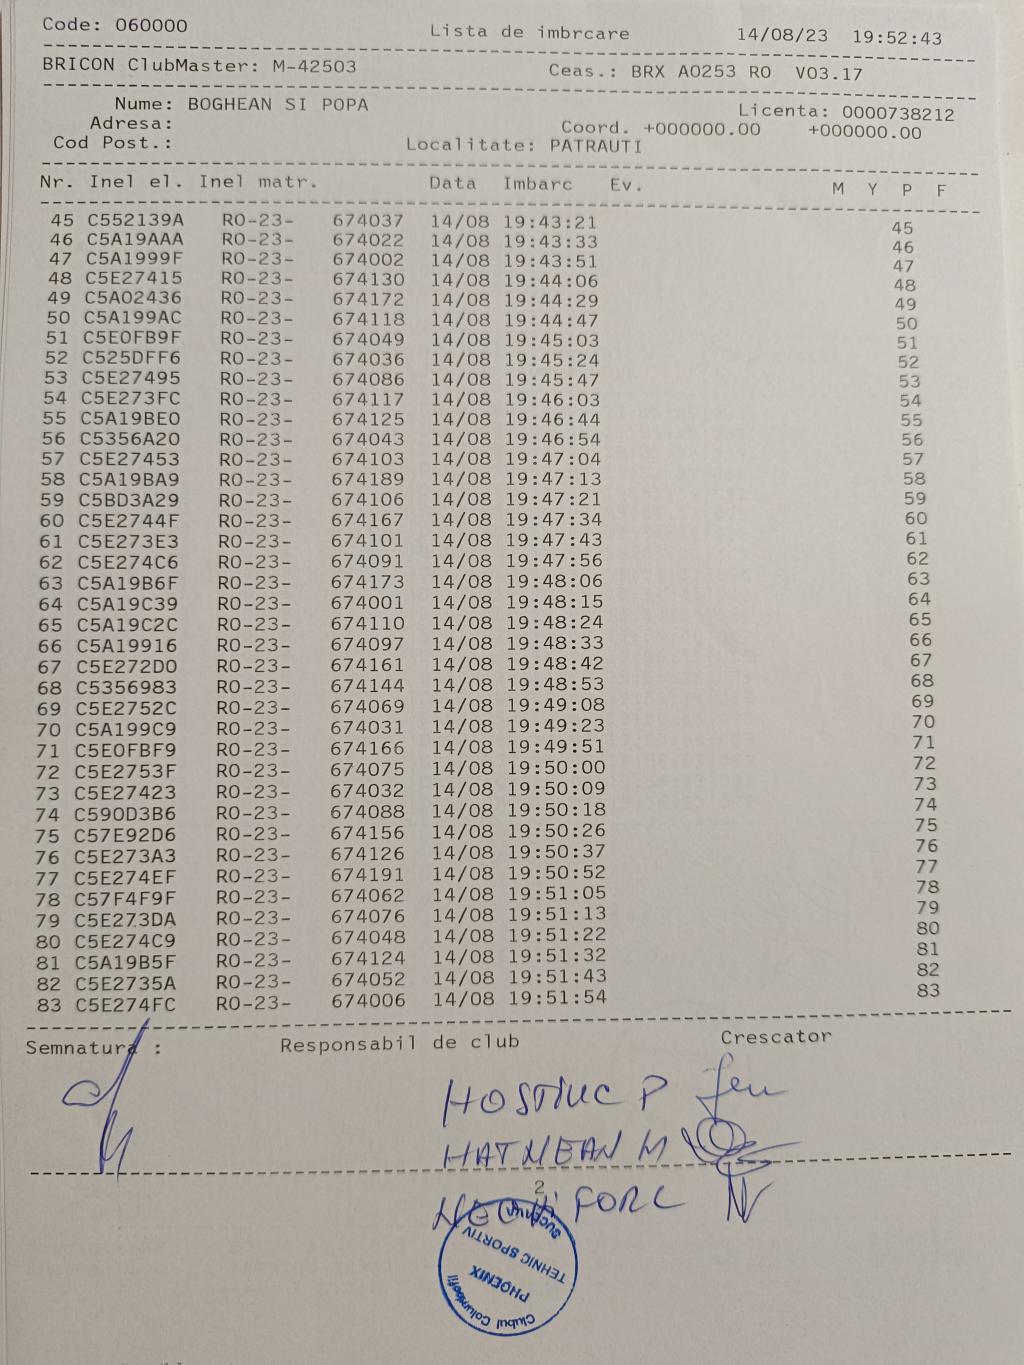 Code: 060000 Lista de imbrcare 14/08/23 19:52:43
BRICON ClubMaster: M-42503 Ceas.: BRX A0253 RO V03.17
Nume: BOGHEAN SI POPA Licenta: 0000738212
Adresa: Coord. +000000.00 +000000.00
Cod Post.: Localitate: PATRAUTI
Nr. Inel el. Inel matr. Data Imbarc Ev. M Y P F
45 C552139A RO-23- 674037 14/08 19:43:21 45
46 C5A19AAA RO-23- 674022 14/08 19:43:33 46
47 C5A1999F RO-23- 674002 14/08 19:43:51 47
48 C5E27415 RO-23- 674130 14/08 19:44:06 48
49 C5A02436 RO-23- 674172 14/08 19:44:29 49
50 C5A199AC RO-23- 674118 14/08 19:44:47 50
51 C5E0FB9F RO-23- 674049 14/08 19:45:03 51
52 C525DFF6 RO-23- 674036 14/08 19:45:24 52
53 C5E27495 RO-23- 674086 14/08 19:45:47 53
54 C5E273FC RO-23- 674117 14/08 19:46:03 54
55 C5A19BE0 RO-23- 674125 14/08 19:46:44 55
56 C5356A20 RO-23- 674043 14/08 19:46:54 56
57 C5E27453 RO-23- 674103 14/08 19:47:04 57
58 C5A19BA9 RO-23- 674189 14/08 19:47:13 58
59 C5BD3A29 RO-23- 674106 14/08 19:47:21 59
60 C5E2744F RO-23- 674167 14/08 19:47:34 60
61 C5E273E3 RO-23- 674101 14/08 19:47:43 61
62 C5E274C6 RO-23- 674091 14/08 19:47:56 62
63 C5A19B6F RO-23- 674173 14/08 19:48:06 63
64 C5A19C39 RO-23- 674001 14/08 19:48:15 64
65 C5A19C2C RO-23- 674110 14/08 19:48:24 65
66 C5A19916 RO-23- 674097 14/08 19:48:33 66
67 C5E272D0 RO-23- 674161 14/08 19:48:42 67
68 C5356983 RO-23- 674144 14/08 19:48:53 68
69 C5E2752C RO-23- 674069 14/08 19:49:08 69
70 C5A199C9 RO-23- 674031 14/08 19:49:23 70
71 C5E0FBF9 RO-23- 674166 14/08 19:49:51 71
72 C5E2753F RO-23- 674075 14/08 19:50:00 72
73 C5E27423 RO-23- 674032 14/08 19:50:09 73
74 C590D3B6 RO-23- 674088 14/08 19:50:18 74
75 C57E92D6 RO-23- 674156 14/08 19:50:26 75
76 C5E273A3 RO-23- 674126 14/08 19:50:37 76
77 C5E274EF RO-23- 674191 14/08 19:50:52 77
78 C57F4F9F RO-23- 674062 14/08 19:51:05 78
79 C5E273DA RO-23- 674076 14/08 19:51:13 79
80 C5E274C9 RO-23- 674048 14/08 19:51:22 80
81 C5A19B5F RO-23- 674124 14/08 19:51:32 81
82 C5E2735A RO-23- 674052 14/08 19:51:43 82
83 C5E274FC RO-23- 674006 14/08 19:51:54 83
Semnatura : Responsabil de club Crescator
HOSTIUC P
HATNEAN M
2
NECHIFOR C
SUCEAVA
TEHNIC SPORTIV
PHOENIX
Clubul Columbofil